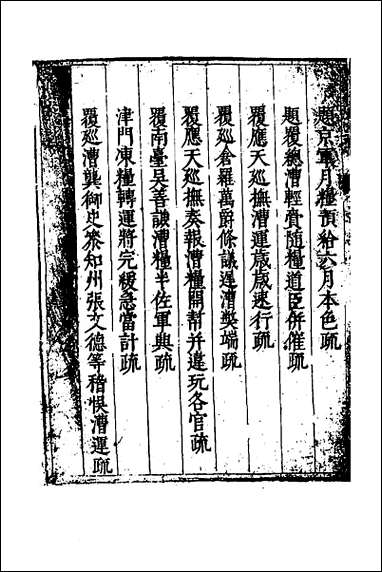 題京軍月糧預給六月本色疏
題覆總漕輕賫隨糧道臣併催疏
覆應天巡撫漕運歲歲速行疏
覆巡倉羅萬爵條議遲漕獘端疏
覆應天巡撫奏報漕糧開幫并違玩各官疏
覆南臺吴善謙漕糧半佐軍興疏
津門東糧轉運將完緩急當計疏
覆廵漕龔御史叅知州張文德等稽悞漕運疏